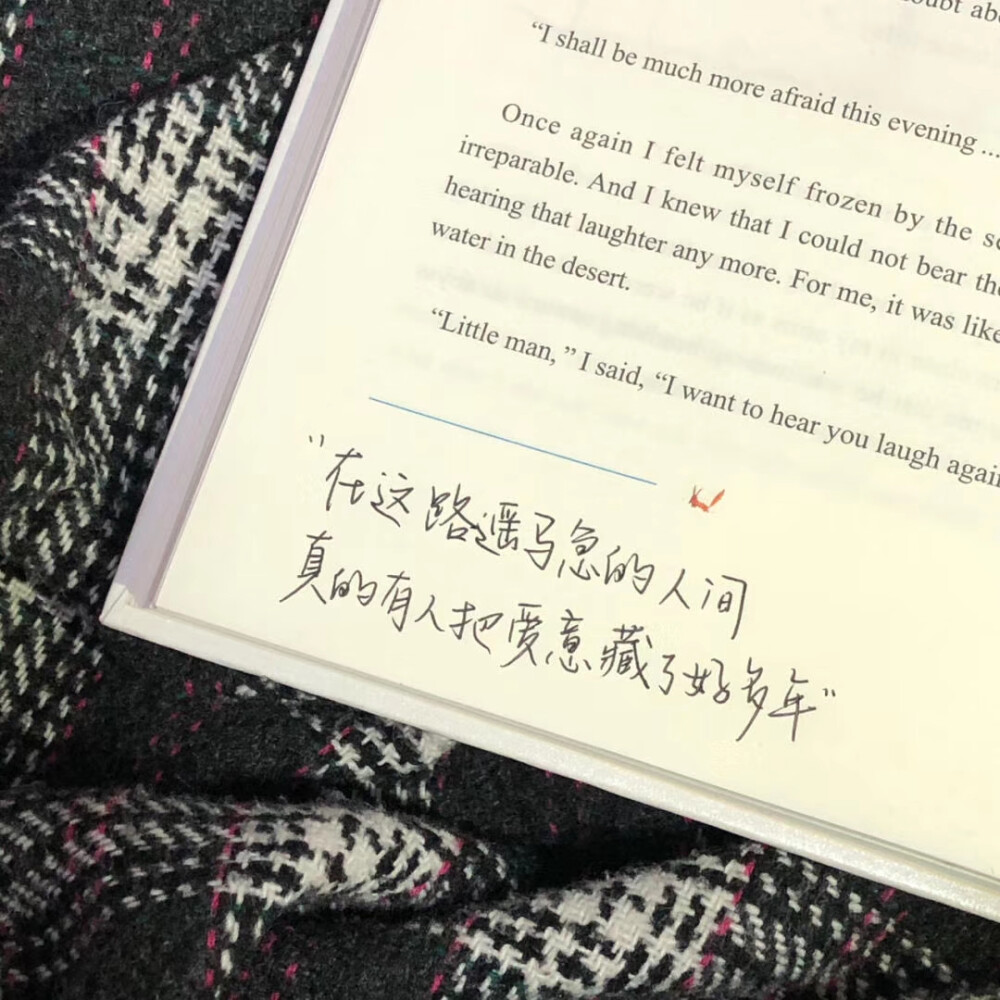 oubt abo
“I shall be much more afraid this evening ...
Once again I felt myself frozen by the se
irreparable. And I knew that I could not bear the
hearing that laughter any more. For me, it was like
water in the desert.
“Little man, ” I said, “I want to hear you laugh again
“在这路遥马急的人间
真的有人把爱意藏了好多年”